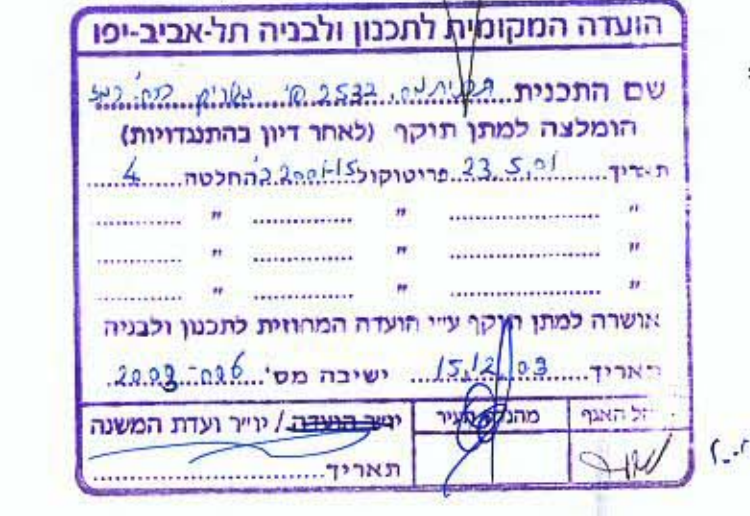 הועדה המקומית לתכנון ולבניה תל-אביב-יפו
שם התכנית תכנית מס. 2532
הומלצה למתן תוקף (לאחר דיון בהתנגדויות)
תאריך 23.5.01 פרוטוקול 2001-15 החלטה 4
" " "
" " "
" " "
אושרה למתן תוקף ע״י הועדה המחוזית לתכנון ולבניה
תאריך 15.12.03 ישיבה מס' 2003
הל האגף מהנדס העיר יו״ר הועדה / יו״ר ועדת המשנה
תאריך